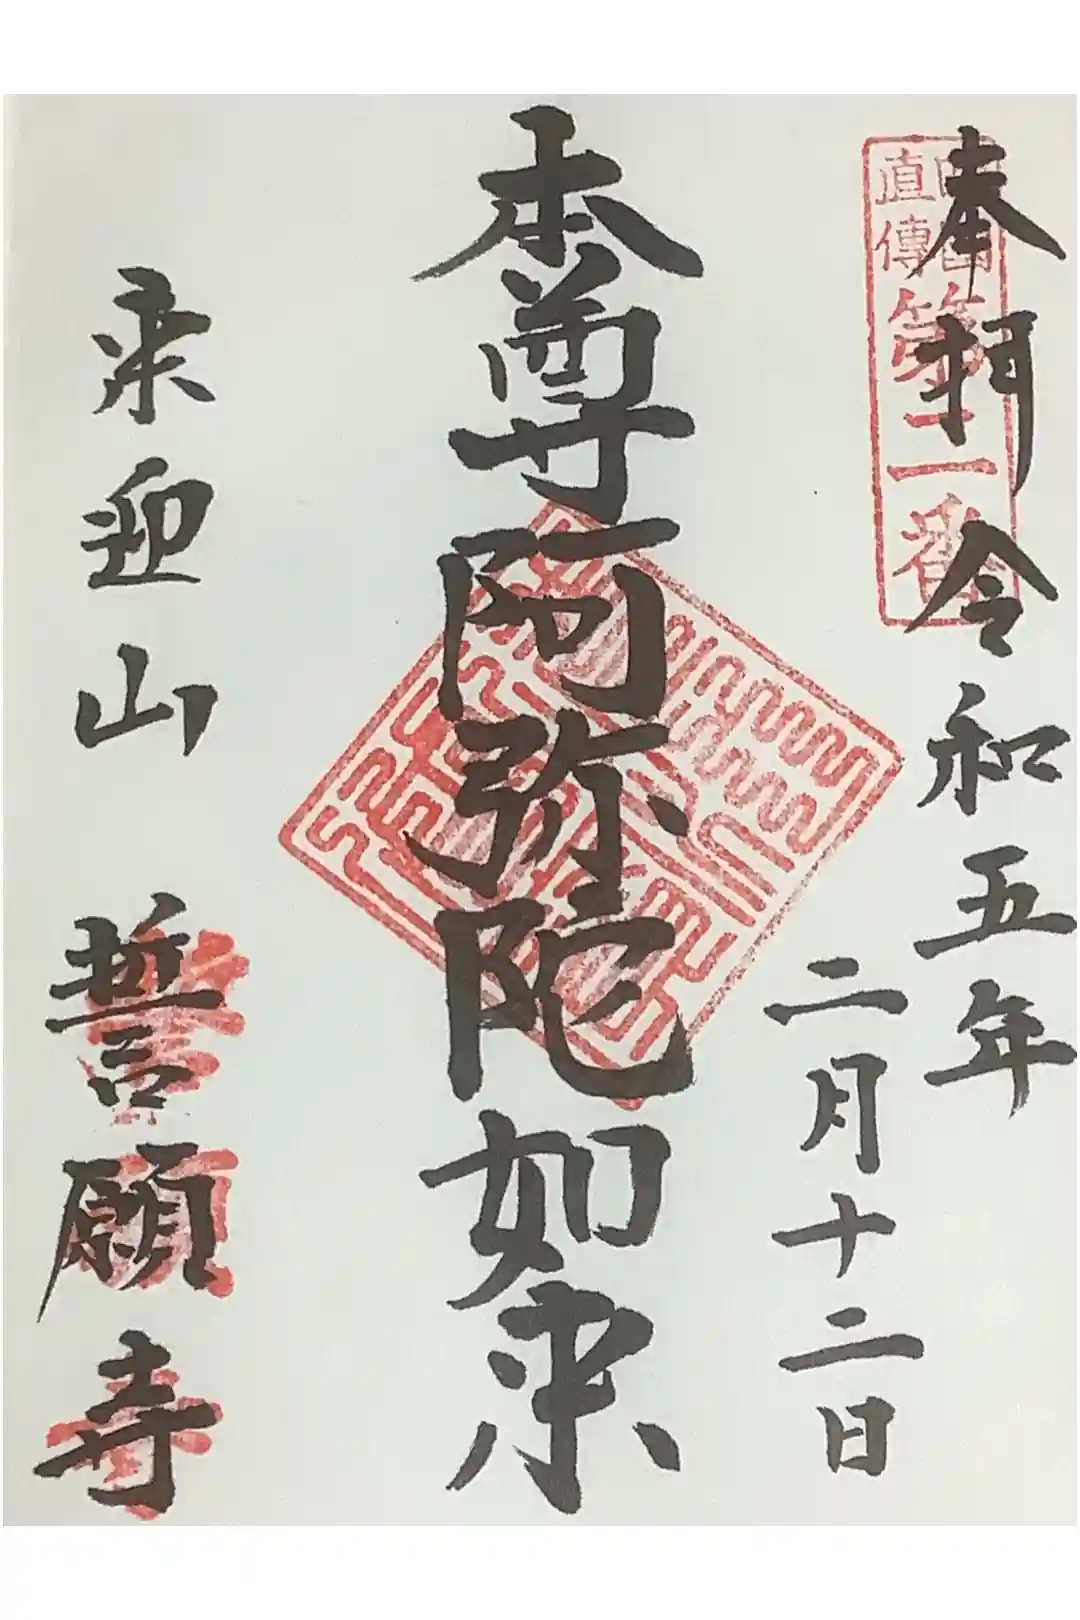 奉拝 令和五年
二月十二日
直傳
第二番
本尊阿弥陀如来
来迎山 誓願寺